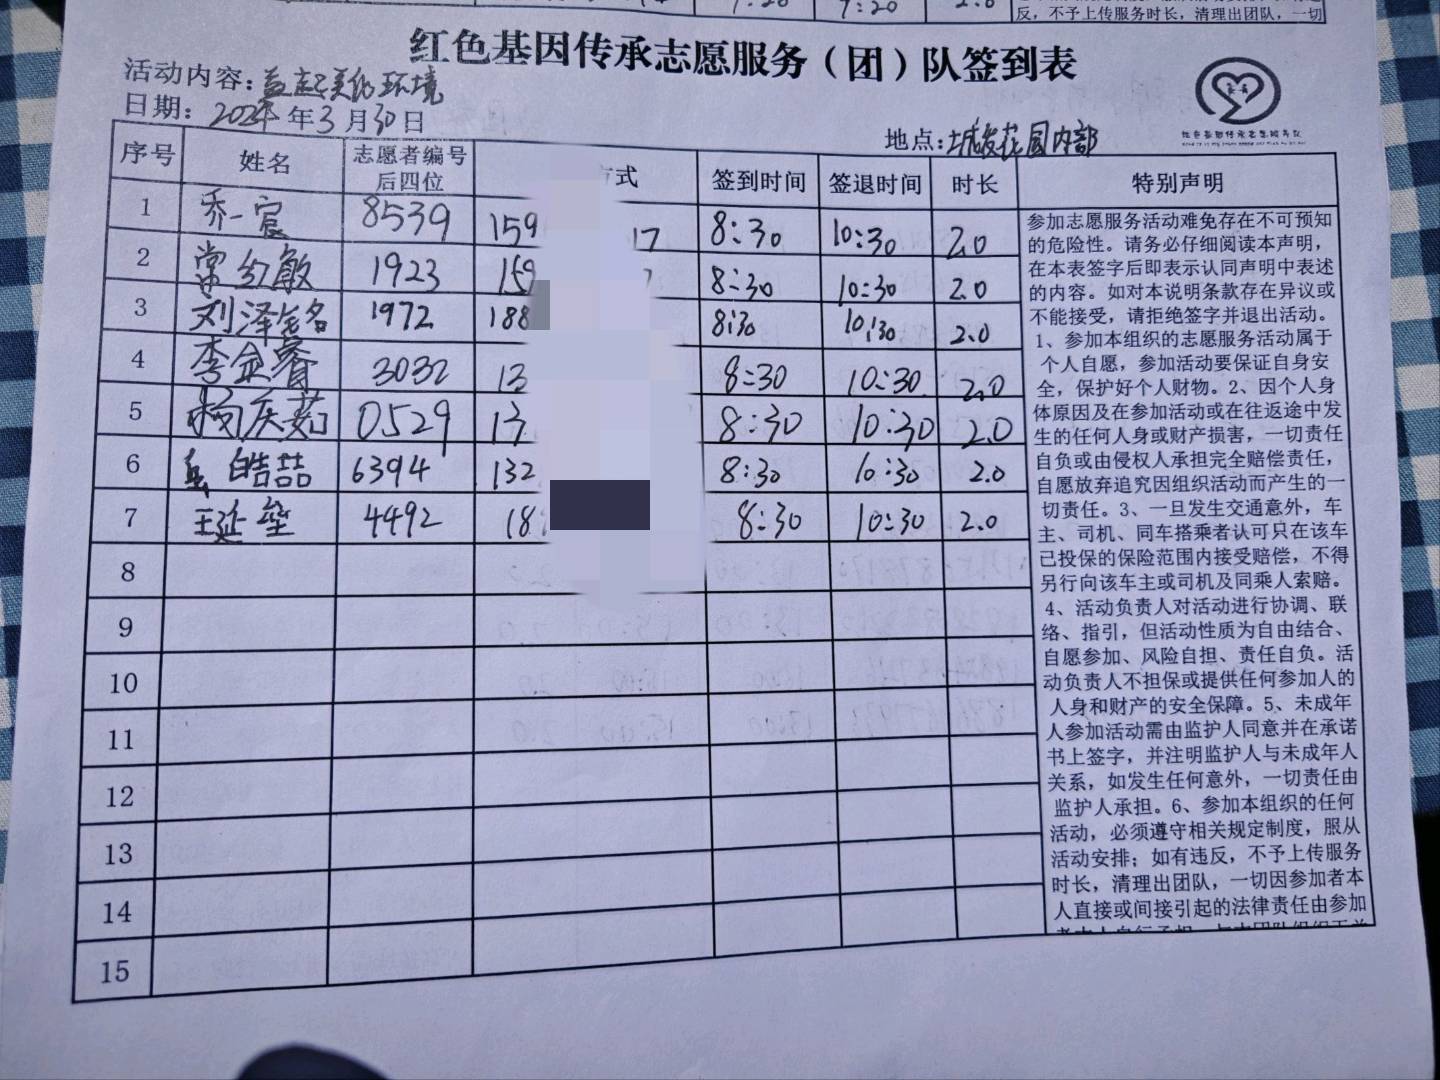 7:20 9:20 2.0
反，不予上传服务时长，清理出团队，一切
红色基因传承志愿服务（团）队签到表
活动内容：益起美化环境
日期：2024年 年3月30日
地点：城发花园内部
序号 姓名 志愿者编号后四位 方式 签到时间 签退时间 时长 特别声明
1 乔一宸 8539 159 17 8:30 10:30 2.0
2 常红敏 1923 159 8:30 10:30 2.0
3 刘泽铭 1972 188 8:30 10:30 2.0
4 李金睿 3032 13 8:30 10:30 2.0
5 杨庆茹 0529 13 8:30 10:30 2.0
6 皓喆 6394 132 8:30 10:30 2.0
7 王延垒 4492 18 8:30 10:30 2.0
8
9
10
11
12
13
14
15
参加志愿服务活动难免存在不可预知
的危险性。请务必仔细阅读本声明，
在本表签字后即表示认同声明中表述
的内容。如对本说明条款存在异议或
不能接受，请拒绝签字并退出活动。
1、参加本组织的志愿服务活动属于
个人自愿，参加活动要保证自身安
全，保护好个人财物。2、因个人身
体原因及在参加活动或在往返途中发
生的任何人身或财产损害，一切责任
自负或由侵权人承担完全赔偿责任，
自愿放弃追究因组织活动而产生的一
切责任。3、一旦发生交通意外，车
主、司机、同车搭乘者认可只在该车
已投保的保险范围内接受赔偿，不得
另行向该车主或司机及同乘人索赔。
4、活动负责人对活动进行协调、联
络、指引，但活动性质为自由结合、
自愿参加、风险自担、责任自负。活
动负责人不担保或提供任何参加人的
人身和财产的安全保障。5、未成年
人参加活动需由监护人同意并在承诺
书上签字，并注明监护人与未成年人
关系，如发生任何意外，一切责任由
监护人承担。6、参加本组织的任何
活动，必须遵守相关规定制度，服从
活动安排；如有违反，不予上传服务
时长，清理出团队，一切因参加者本
人直接或间接引起的法律责任由参加